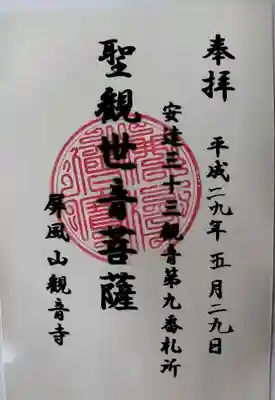 奉拝
平成二九年五月二九日
安達三十三観音第九番札所
聖觀世音菩薩
屏風山觀音寺